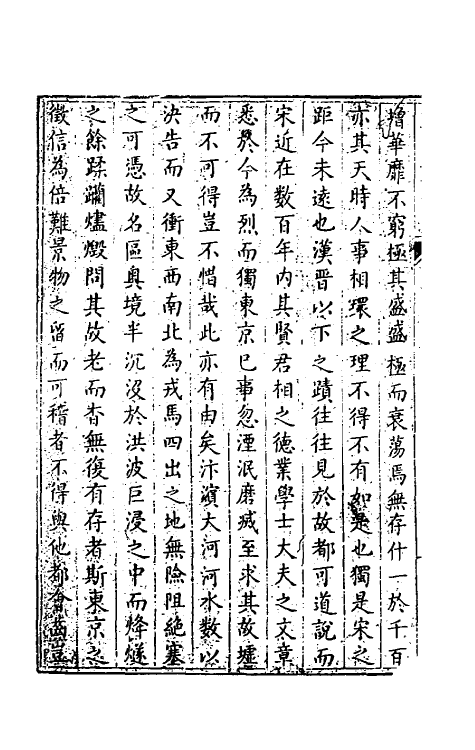 增華靡不窮極其盛盛極而衰蕩焉無存什一於千百
亦其天時人事相環之理不得不有如是也獨是宋之
距今未遠也漢晉以下之蹟往往見於故都可道說而
宋近在數百年内其賢君相之德業學士大夫之文章
悉於今為烈而獨東京已事忽湮泯磨滅至求其故墟
而不可得豈不惜哉此亦有由矣汴瀕大河河水數以
決告而又衝東西南北為戎馬四出之地無險阻絶塞
之可憑故名區奥境半沉没於洪波巨浸之中而烽燧
之餘蹂躪燼燬問其故老而杳無復有存者斯東京之
徵信為倍難景物之留而可稽者不得與他都會齒豈